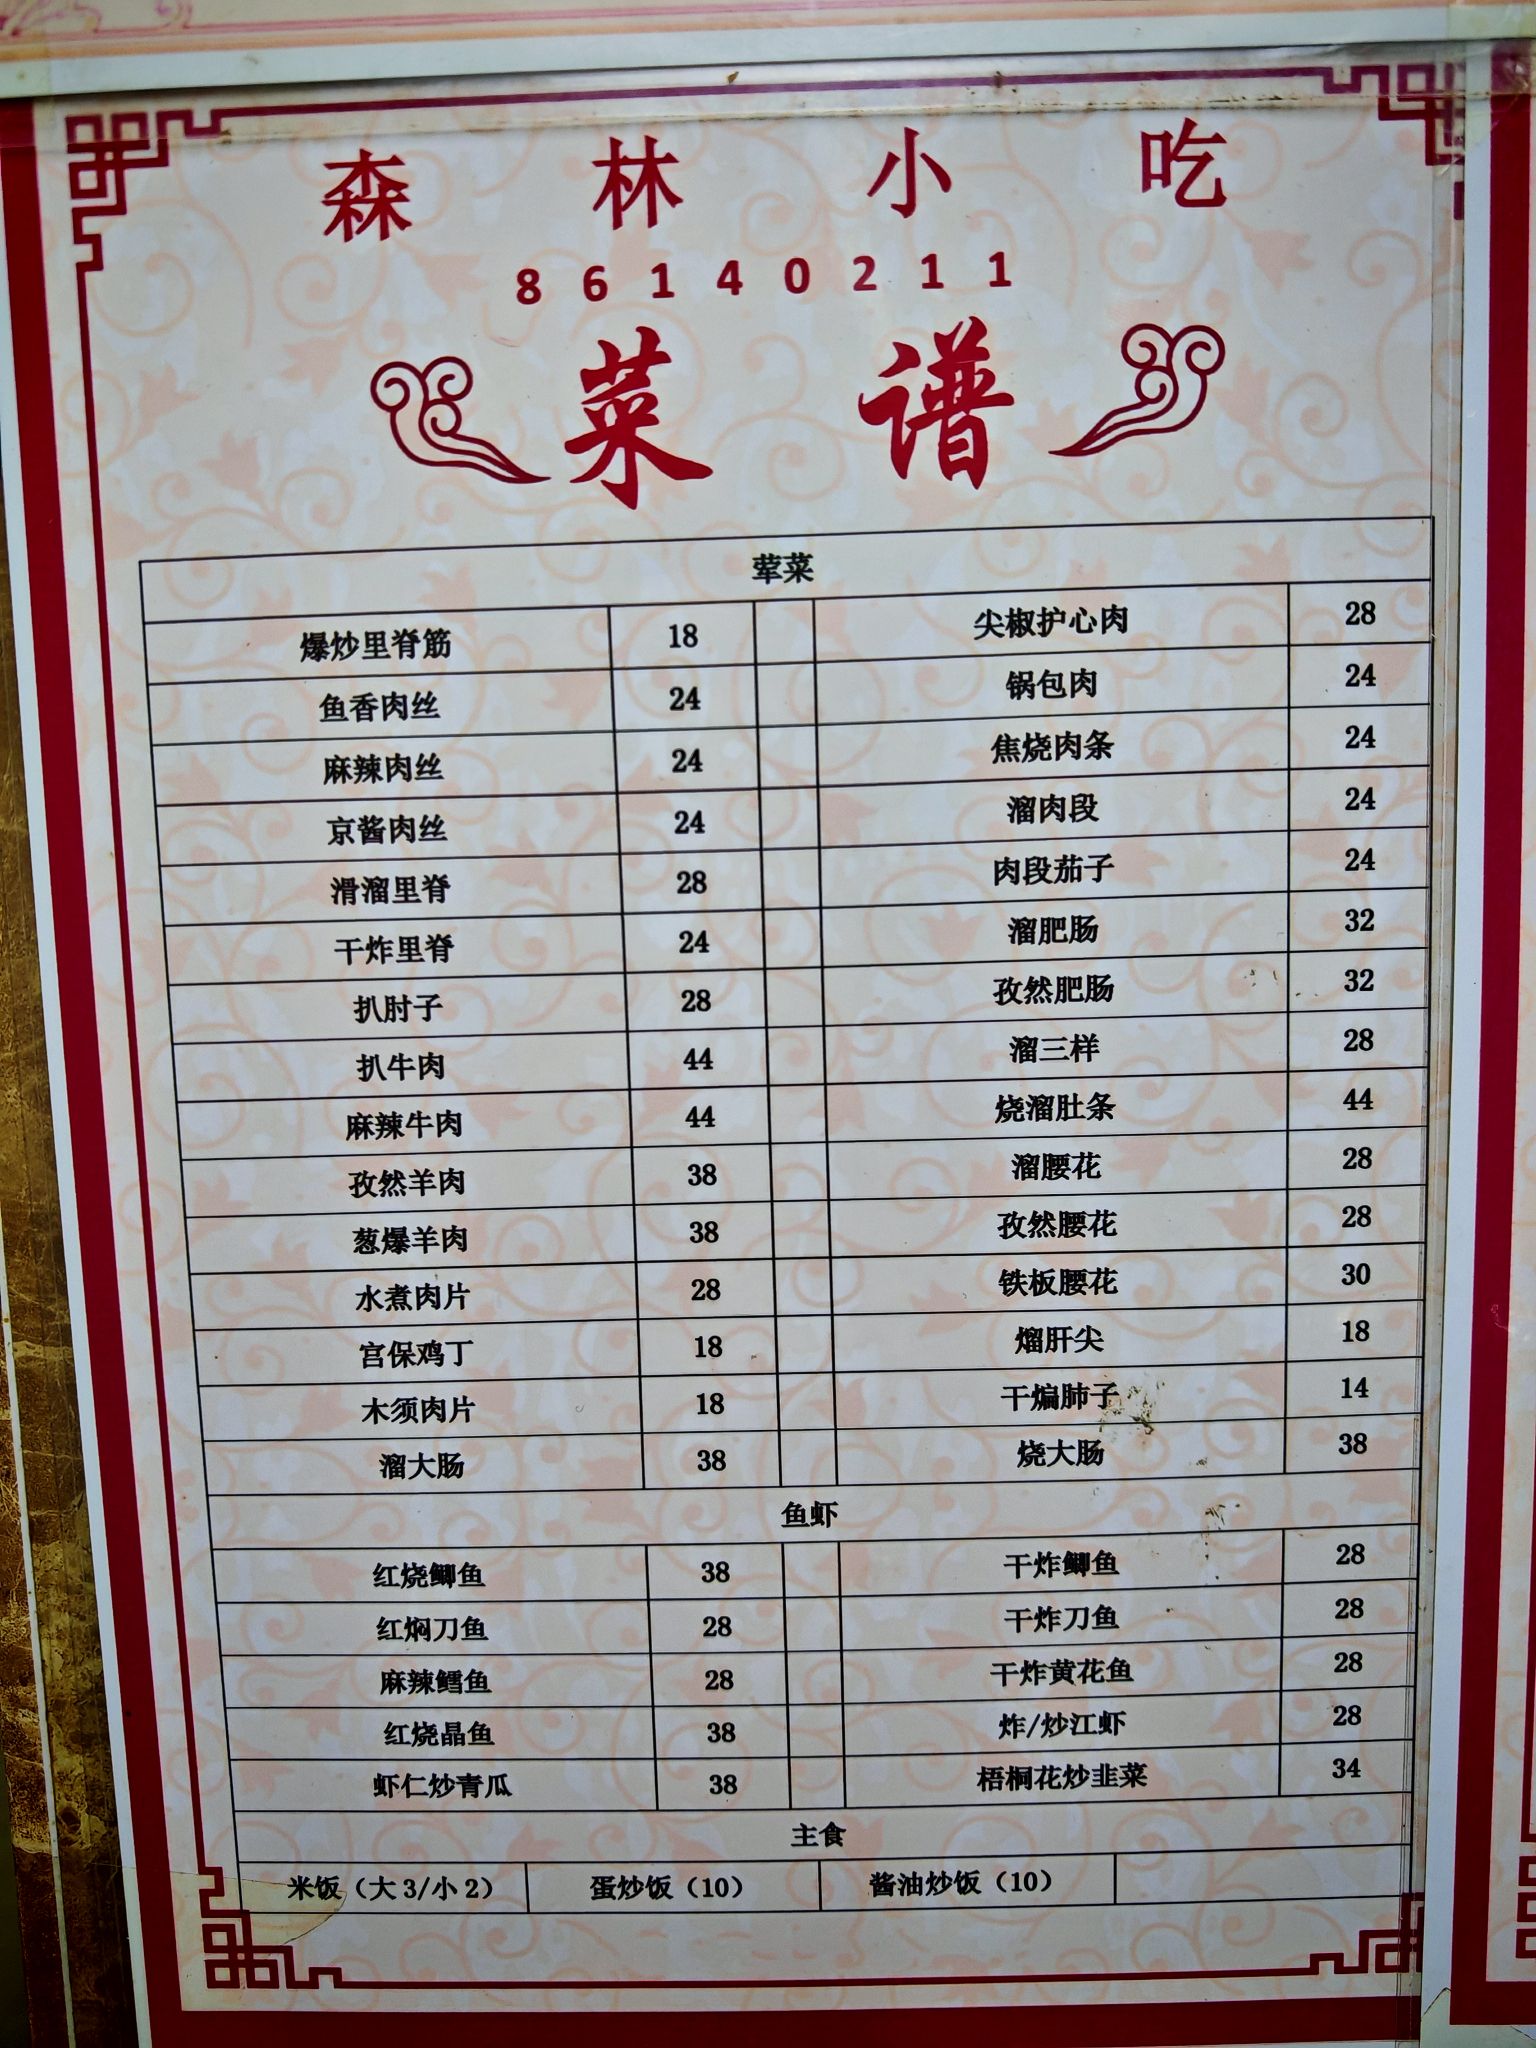 森林小吃
86140211
菜谱
荤菜
爆炒里脊筋 18 尖椒护心肉 28
鱼香肉丝 24 锅包肉 24
麻辣肉丝 24 焦烧肉条 24
京酱肉丝 24 溜肉段 24
滑溜里脊 28 肉段茄子 24
干炸里脊 24 溜肥肠 32
扒肘子 28 孜然肥肠 32
扒牛肉 44 溜三样 28
麻辣牛肉 44 烧溜肚条 44
孜然羊肉 38 溜腰花 28
葱爆羊肉 38 孜然腰花 28
水煮肉片 28 铁板腰花 30
宫保鸡丁 18 熘肝尖 18
木须肉片 18 干煸肺子 14
溜大肠 38 烧大肠 38
鱼虾
红烧鲫鱼 38 干炸鲫鱼 28
红焖刀鱼 28 干炸刀鱼 28
麻辣鳕鱼 28 干炸黄花鱼 28
红烧晶鱼 38 炸/炒江虾 28
虾仁炒青瓜 38 梧桐花炒韭菜 34
主食
米饭（大3/小2） 蛋炒饭（10） 酱油炒饭（10）